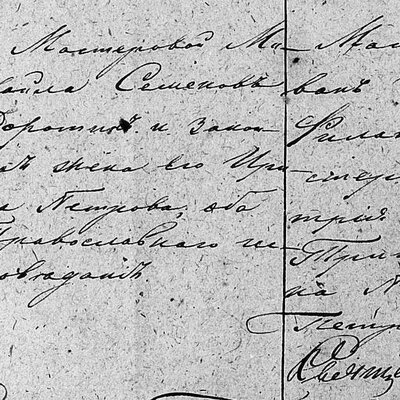 Мастеровой Ми-
хаила Семеновъ
и закон-
жена его Ири-
на Петрова, оба
Православнаго ис-
повѣданія
Мас
ванъ
Фила
стер
трій
Три
на
Петр